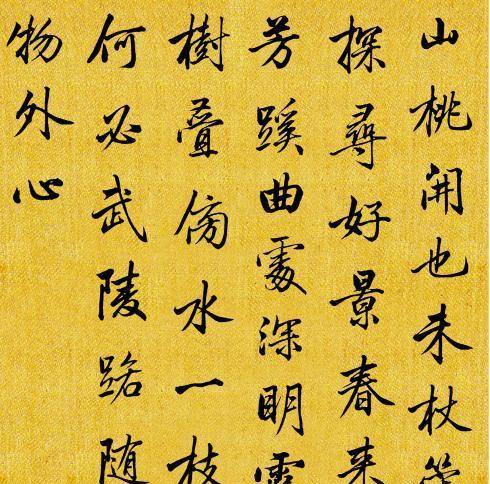 山桃開也未杖
探尋好景春来
芳蹊曲處深明
樹叠傍水一枝
何必武陵路随
物外心